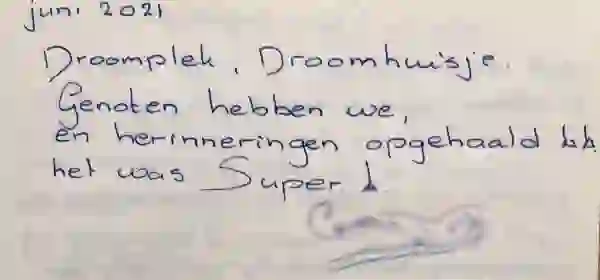 juni 2021
Droomplek, Droomhuisje.
Genoten hebben we,
en herinneringen opgehaald
het was Super!